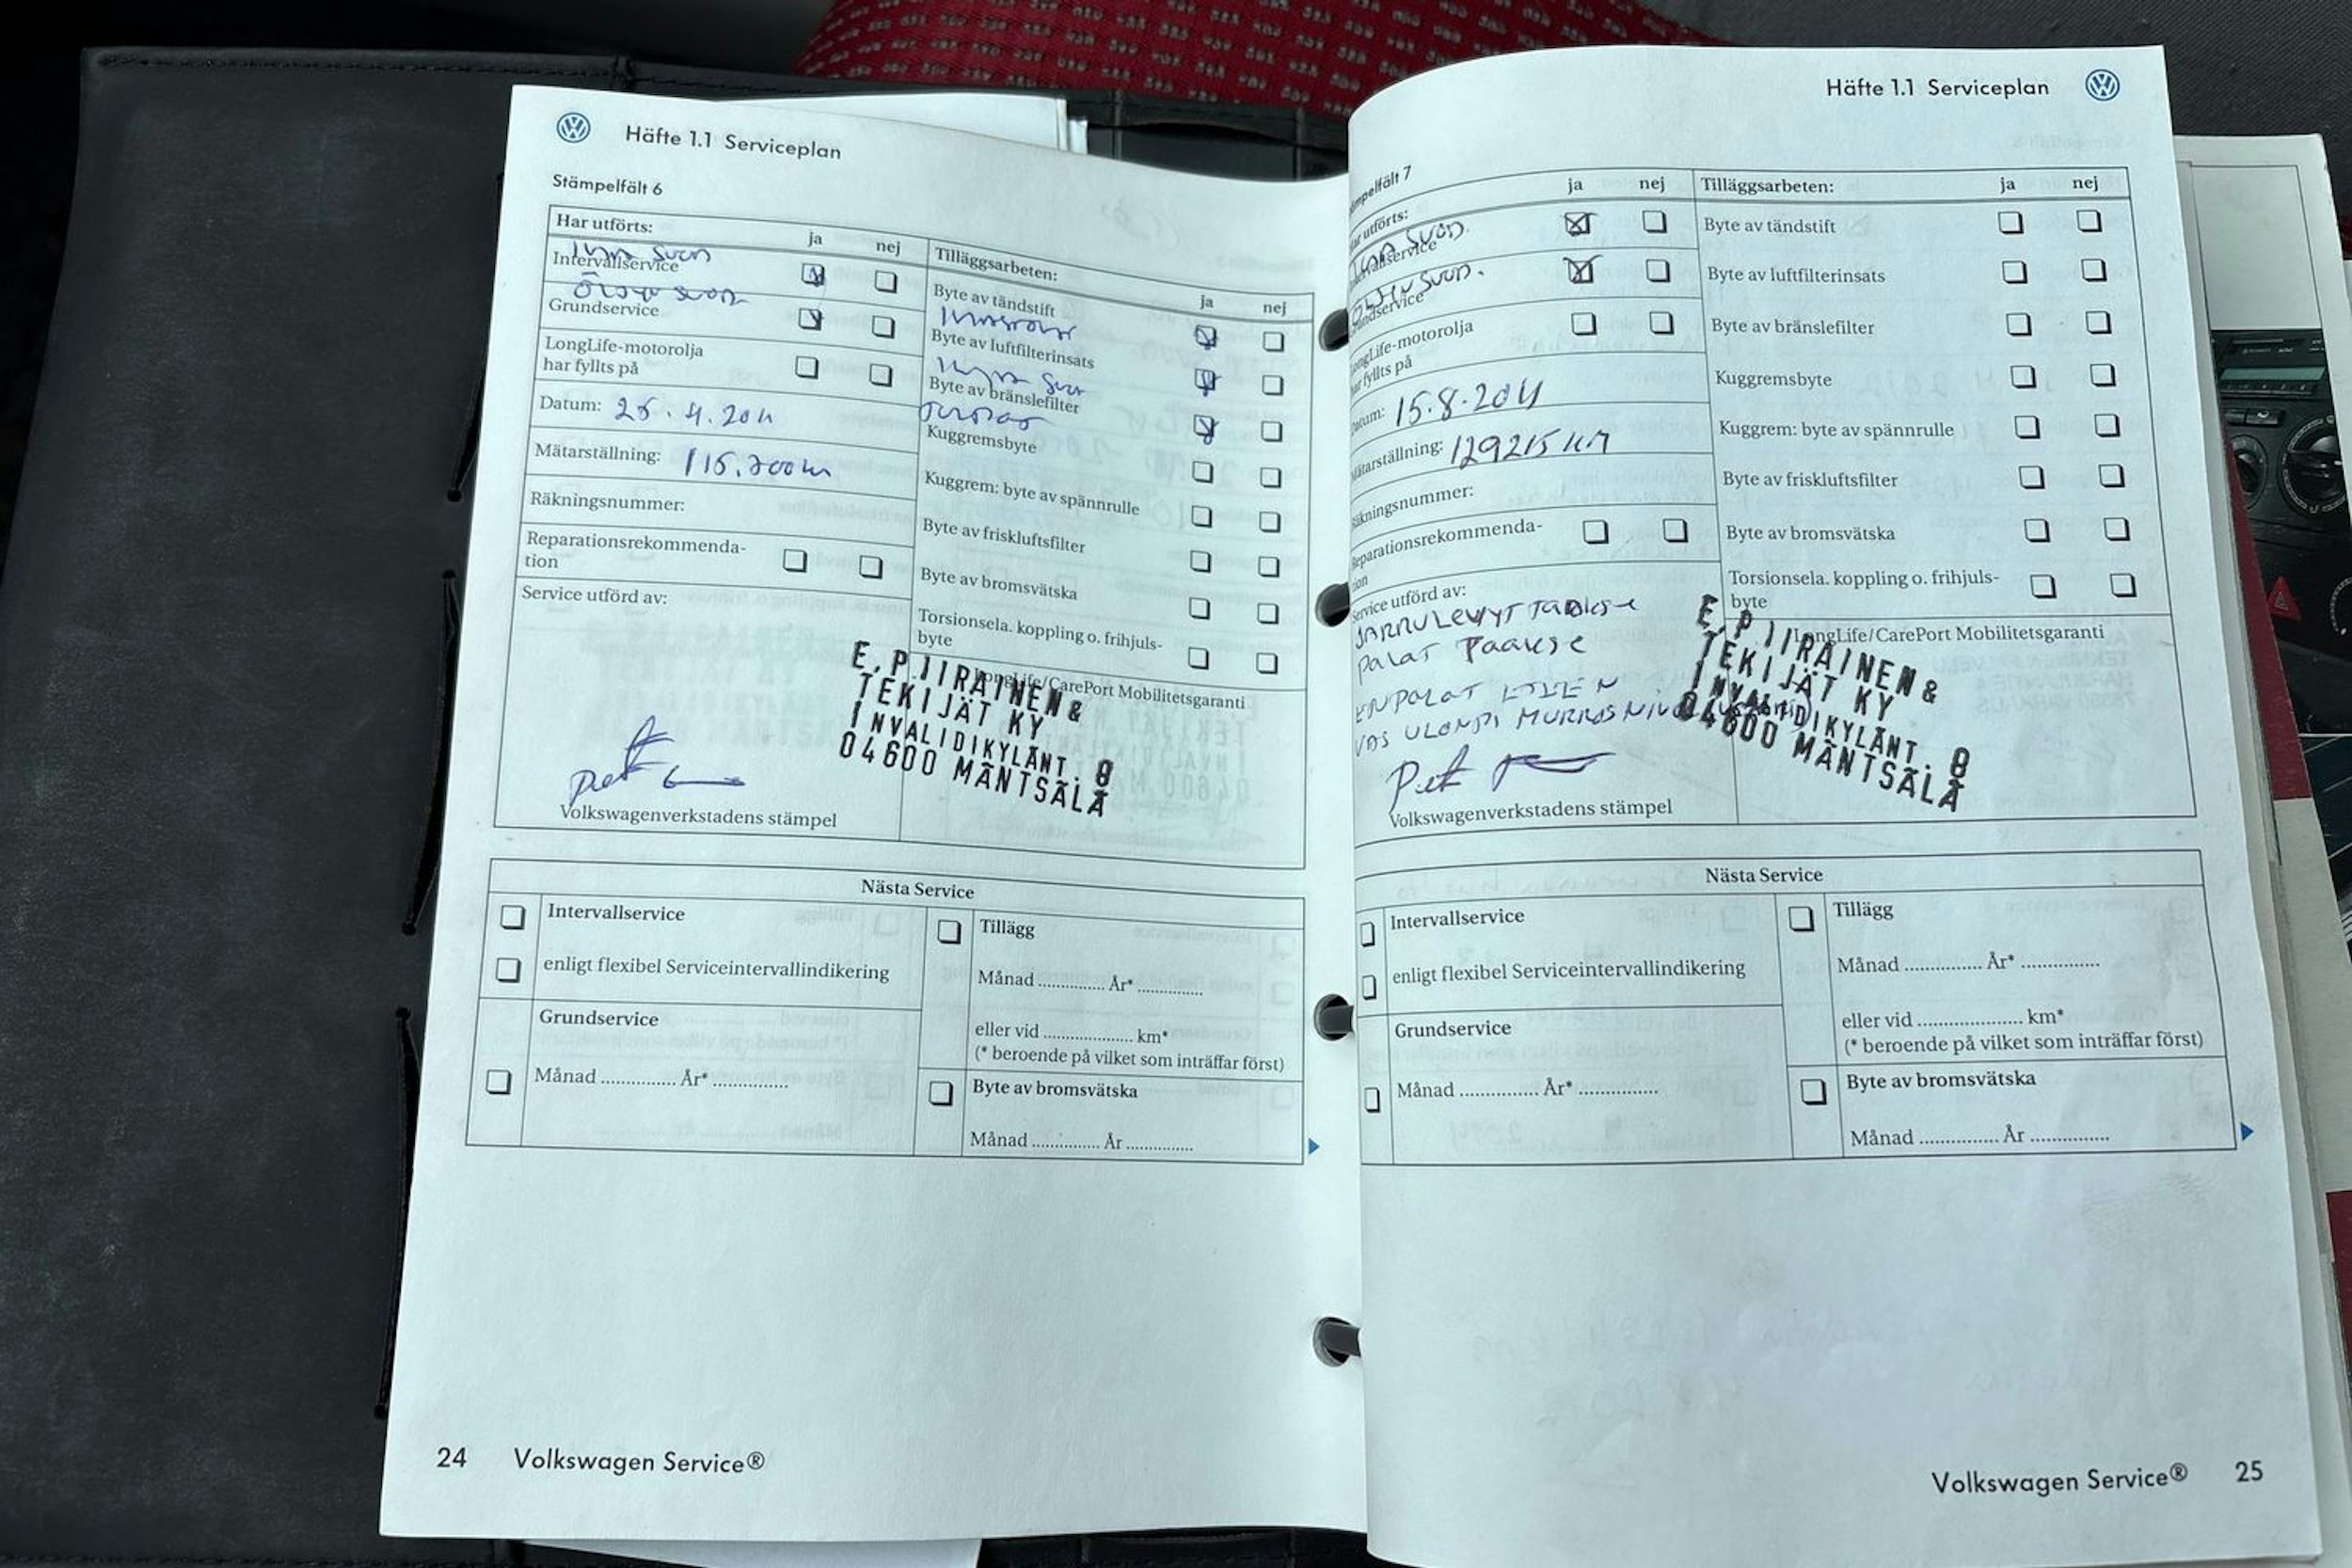 Häfte 1.1 Serviceplan
Stämpelfält 6
Har utförts: ja nej
Intervallservice
Grundservice
LongLife-motorolja
har fyllts på
Datum: 2011
Mätarställning:
Räkningsnummer:
Reparationsrekommenda-
tion
Service utförd av:
Volkswagenverkstadens stämpel
Tilläggsarbeten: ja nej
Byte av tändstift
Byte av luftfilterinsats
Byte av bränslefilter
Kuggremsbyte
Kuggrem: byte av spännrulle
Byte av friskluftsfilter
Byte av bromsvätska
Torsionsela. koppling o. frihjuls-
byte
LongLife/CarePort Mobilitetsgaranti
E.PIIRAINEN &
TEKIJÄT KY
INVALIDIKYLÄNT. 8
04600 MÄNTSÄLÄ
Nästa Service
Intervallservice
enligt flexibel Serviceintervallindikering
Grundservice
Månad ............... År* ...............
Tillägg
Månad .............. År* ..............
eller vid .................... km*
(* beroende på vilket som inträffar först)
Byte av bromsvätska
Månad .............. År ..............
24 Volkswagen Service®
Häfte 1.1 Serviceplan
ja nej
LongLife-motorolja
har fyllts på
Datum: 15.8.2011
Mätarställning: 129215 KM
Räkningsnummer:
Reparationsrekommenda-
tion
Service utförd av:
JARRULEVYT TAAKSE
PALAT TAAKSE
Volkswagenverkstadens stämpel
Tilläggsarbeten: ja nej
Byte av tändstift
Byte av luftfilterinsats
Byte av bränslefilter
Kuggremsbyte
Kuggrem: byte av spännrulle
Byte av friskluftsfilter
Byte av bromsvätska
Torsionsela. koppling o. frihjuls-
byte
LongLife/CarePort Mobilitetsgaranti
E.PIIRAINEN &
TEKIJÄT KY
INVALIDIKYLÄNT. 8
04600 MÄNTSÄLÄ
Nästa Service
Intervallservice
enligt flexibel Serviceintervallindikering
Grundservice
Månad ............... År* ...............
Tillägg
Månad ............... År* ...............
eller vid ..................... km*
(* beroende på vilket som inträffar först)
Byte av bromsvätska
Månad ............... År ...............
Volkswagen Service® 25